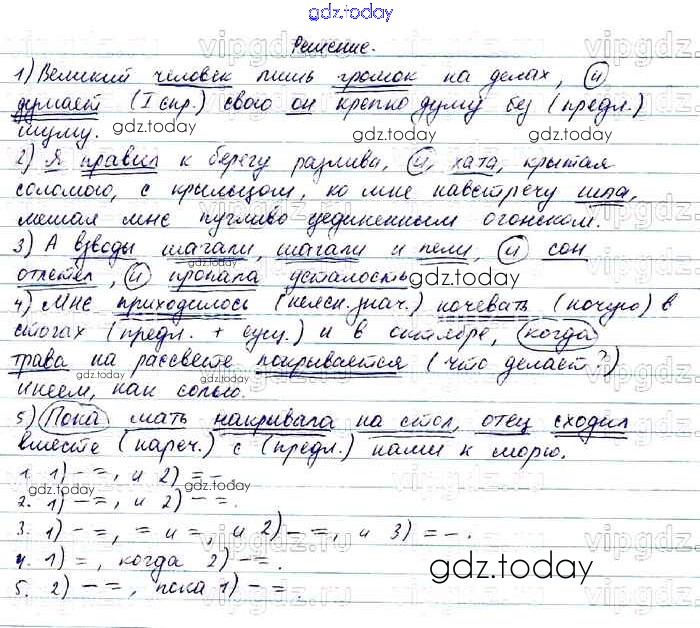 gdz.today
Решение.
1) Великий человек лишь громок на делах, и
думает (I спр.) свою он крепко думу без (предл.)
шуму. gdz.today gdz.today
2) Я правил к берегу разлива, и, хата, крытая
соломою, с крыльцом, ко мне навстречу шла,
мешая мне пугливо уединенным огоньком.
3) А взводы шагали, шагали и пели, и сон
отлетел, и пропала усталость. gdz.today
4) Мне приходилось (неясн. знач.) ночевать (ночую) в
стогах (предл. + сущ.) и в октябре, когда
трава на рассвете покрывается (что делает?)
инеем, как солью. gdz.today gdz.today
5) Пока мать накривала на стол, отец сходил
вместе (нареч.) с (предл.) нами к морю.
1. 1) – =, и 2) = –.
gdz.today gdz.today
2. 1) – =, и 2) – =.
3. 1) – =, = и =, и 2) – =, и 3) = –.
4. 1) =, когда 2) – =.
5. 2) – =, пока 1) – =. gdz.today